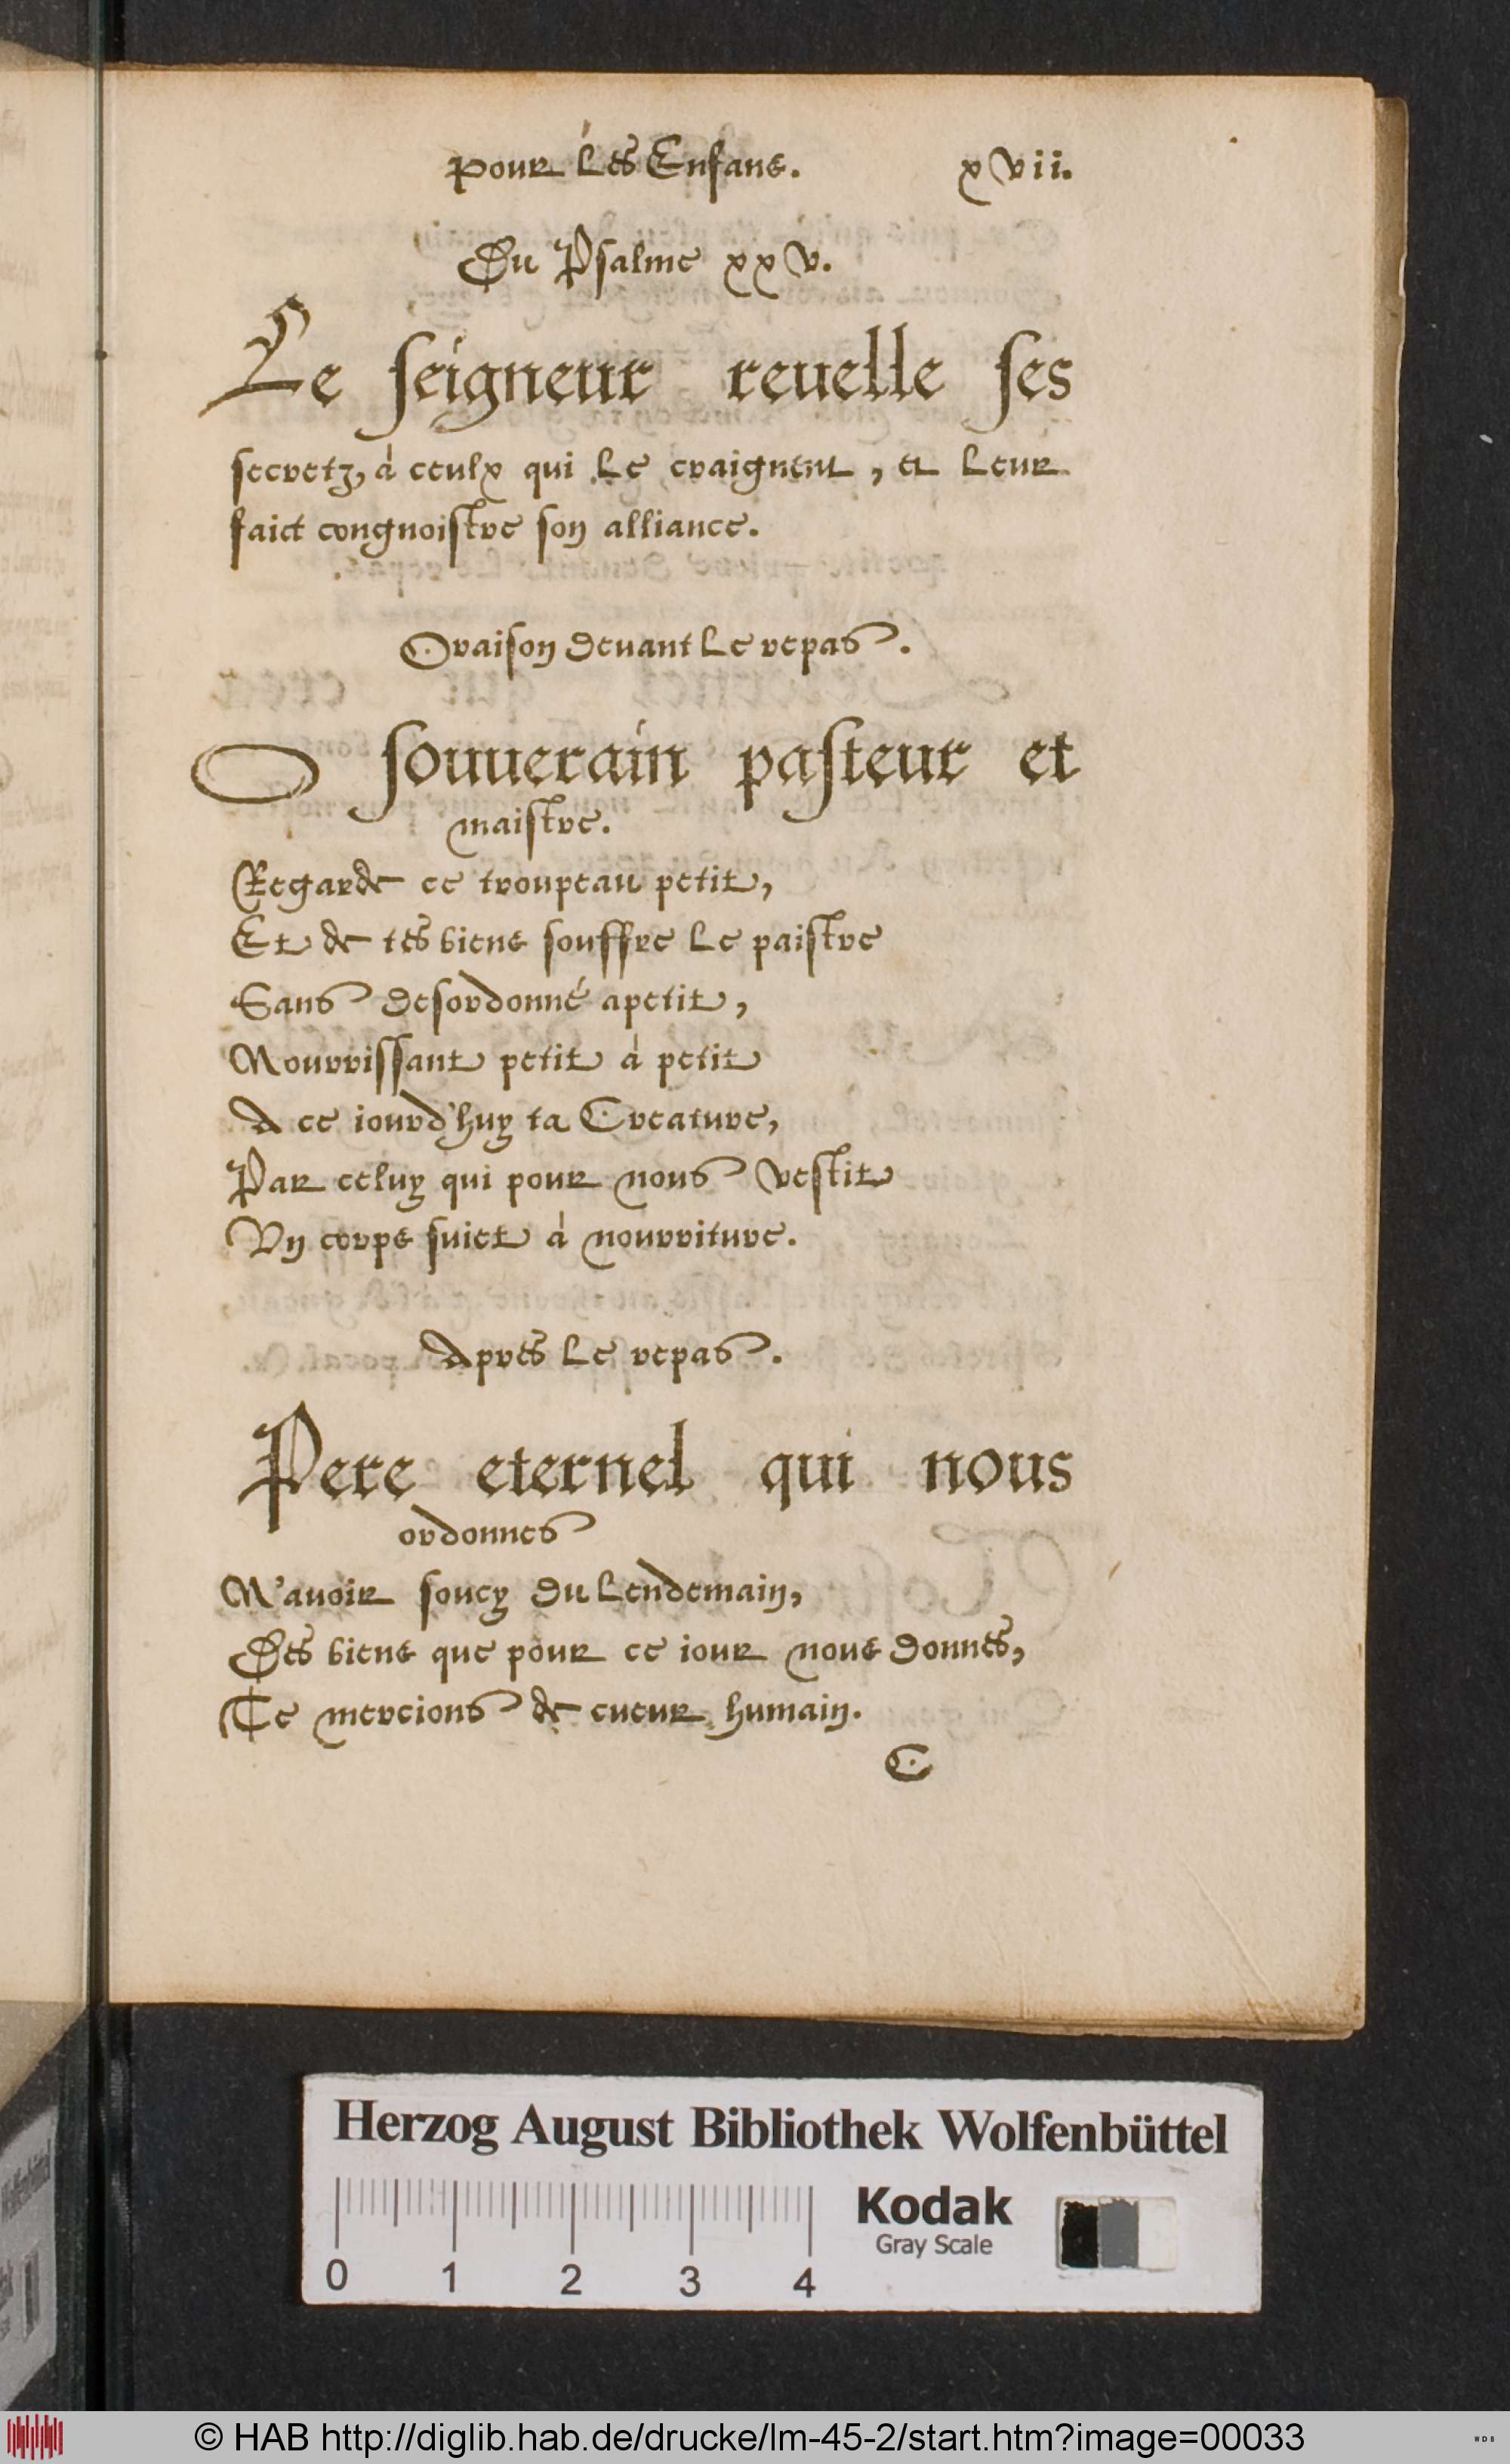 pour les Enfans. xvii.
Du Psalme xxv.
Le seigneur reuelle ses
secretz, à ceulx qui le craignent, et leur
faict congnoistre son alliance.
Oraison deuant le repas.
O souuerain pasteur et
maistre.
Regarde ce troupeau petit,
Et de tes biens souffre le paistre
Sans desordonné apetit,
Nourrissant petit à petit
A ce iourd'huy ta Creature,
Par celuy qui pour nous vestit
Vn corps suiet à nourriture.
Apres le repas.
Pere eternel qui nous
ordonnes
N'auoir soucy du lendemain,
Des biens que pour ce iour nous donnes,
Te mercions de cueur humain.
C
Herzog August Bibliothek Wolfenbüttel
Kodak
Gray Scale
0 1 2 3 4
© HAB http://diglib.hab.de/drucke/lm-45-2/start.htm?image=00033